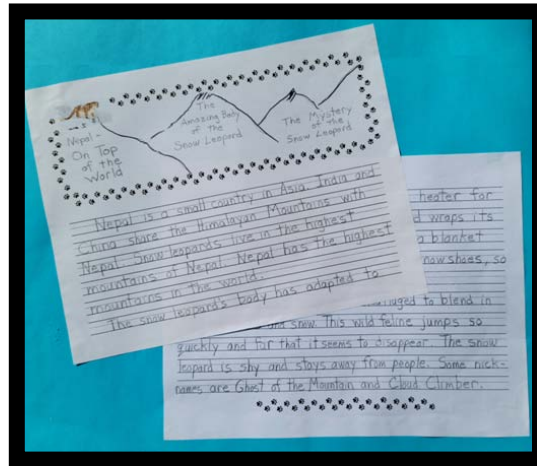 Nepal -
On Top
of the
World
The
Amazing Body
of the
Snow Leopard
The Mystery
of the
Snow Leopard
Nepal is a small country in Asia. India and
China share the Himalayan Mountains with
Nepal. Snow leopards live in the highest
mountains of Nepal. Nepal has the highest
mountains in the world.
The snow leopard's body has adapted to
heater for
wraps its
a blanket
snow shoes, so
to blend in
and snow. This wild feline jumps so
quickly and far that it seems to disappear. The snow
leopard is shy and stays away from people. Some nick-
names are Ghost of the Mountain and Cloud Climber.